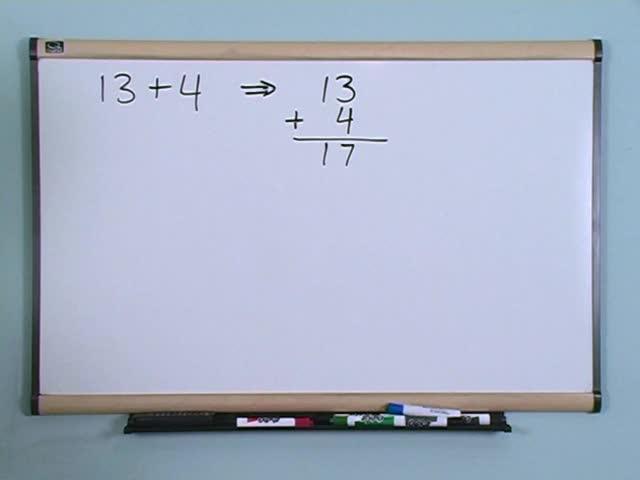 13 + 4 ⇒ 13
+ 4
17